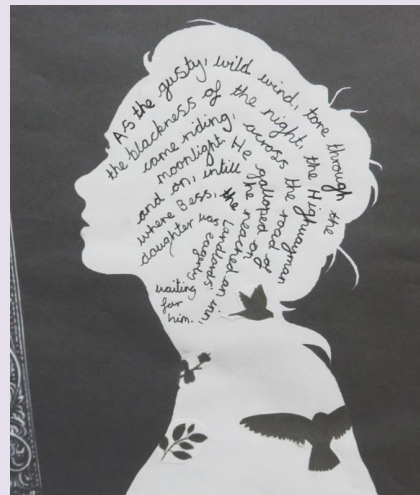 As the gusty, wild wind, tore through the
the blackness of the night, the Highwayman
came riding, across the road of
moonlight. He galloped on
and on, intill he reached an inn,
where Bess, the Landlords
daughter was eagerly
waiting
for
him.